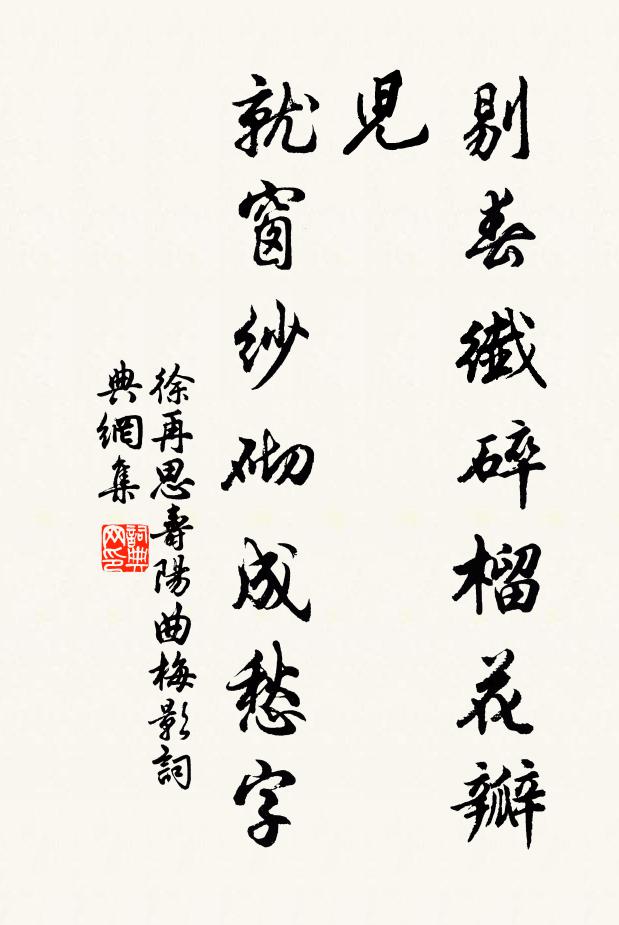 剔春纖碎榴花瓣
兒
就窗紗砌成愁字
徐再思壽陽曲梅影詞
典網集
詞典
网印